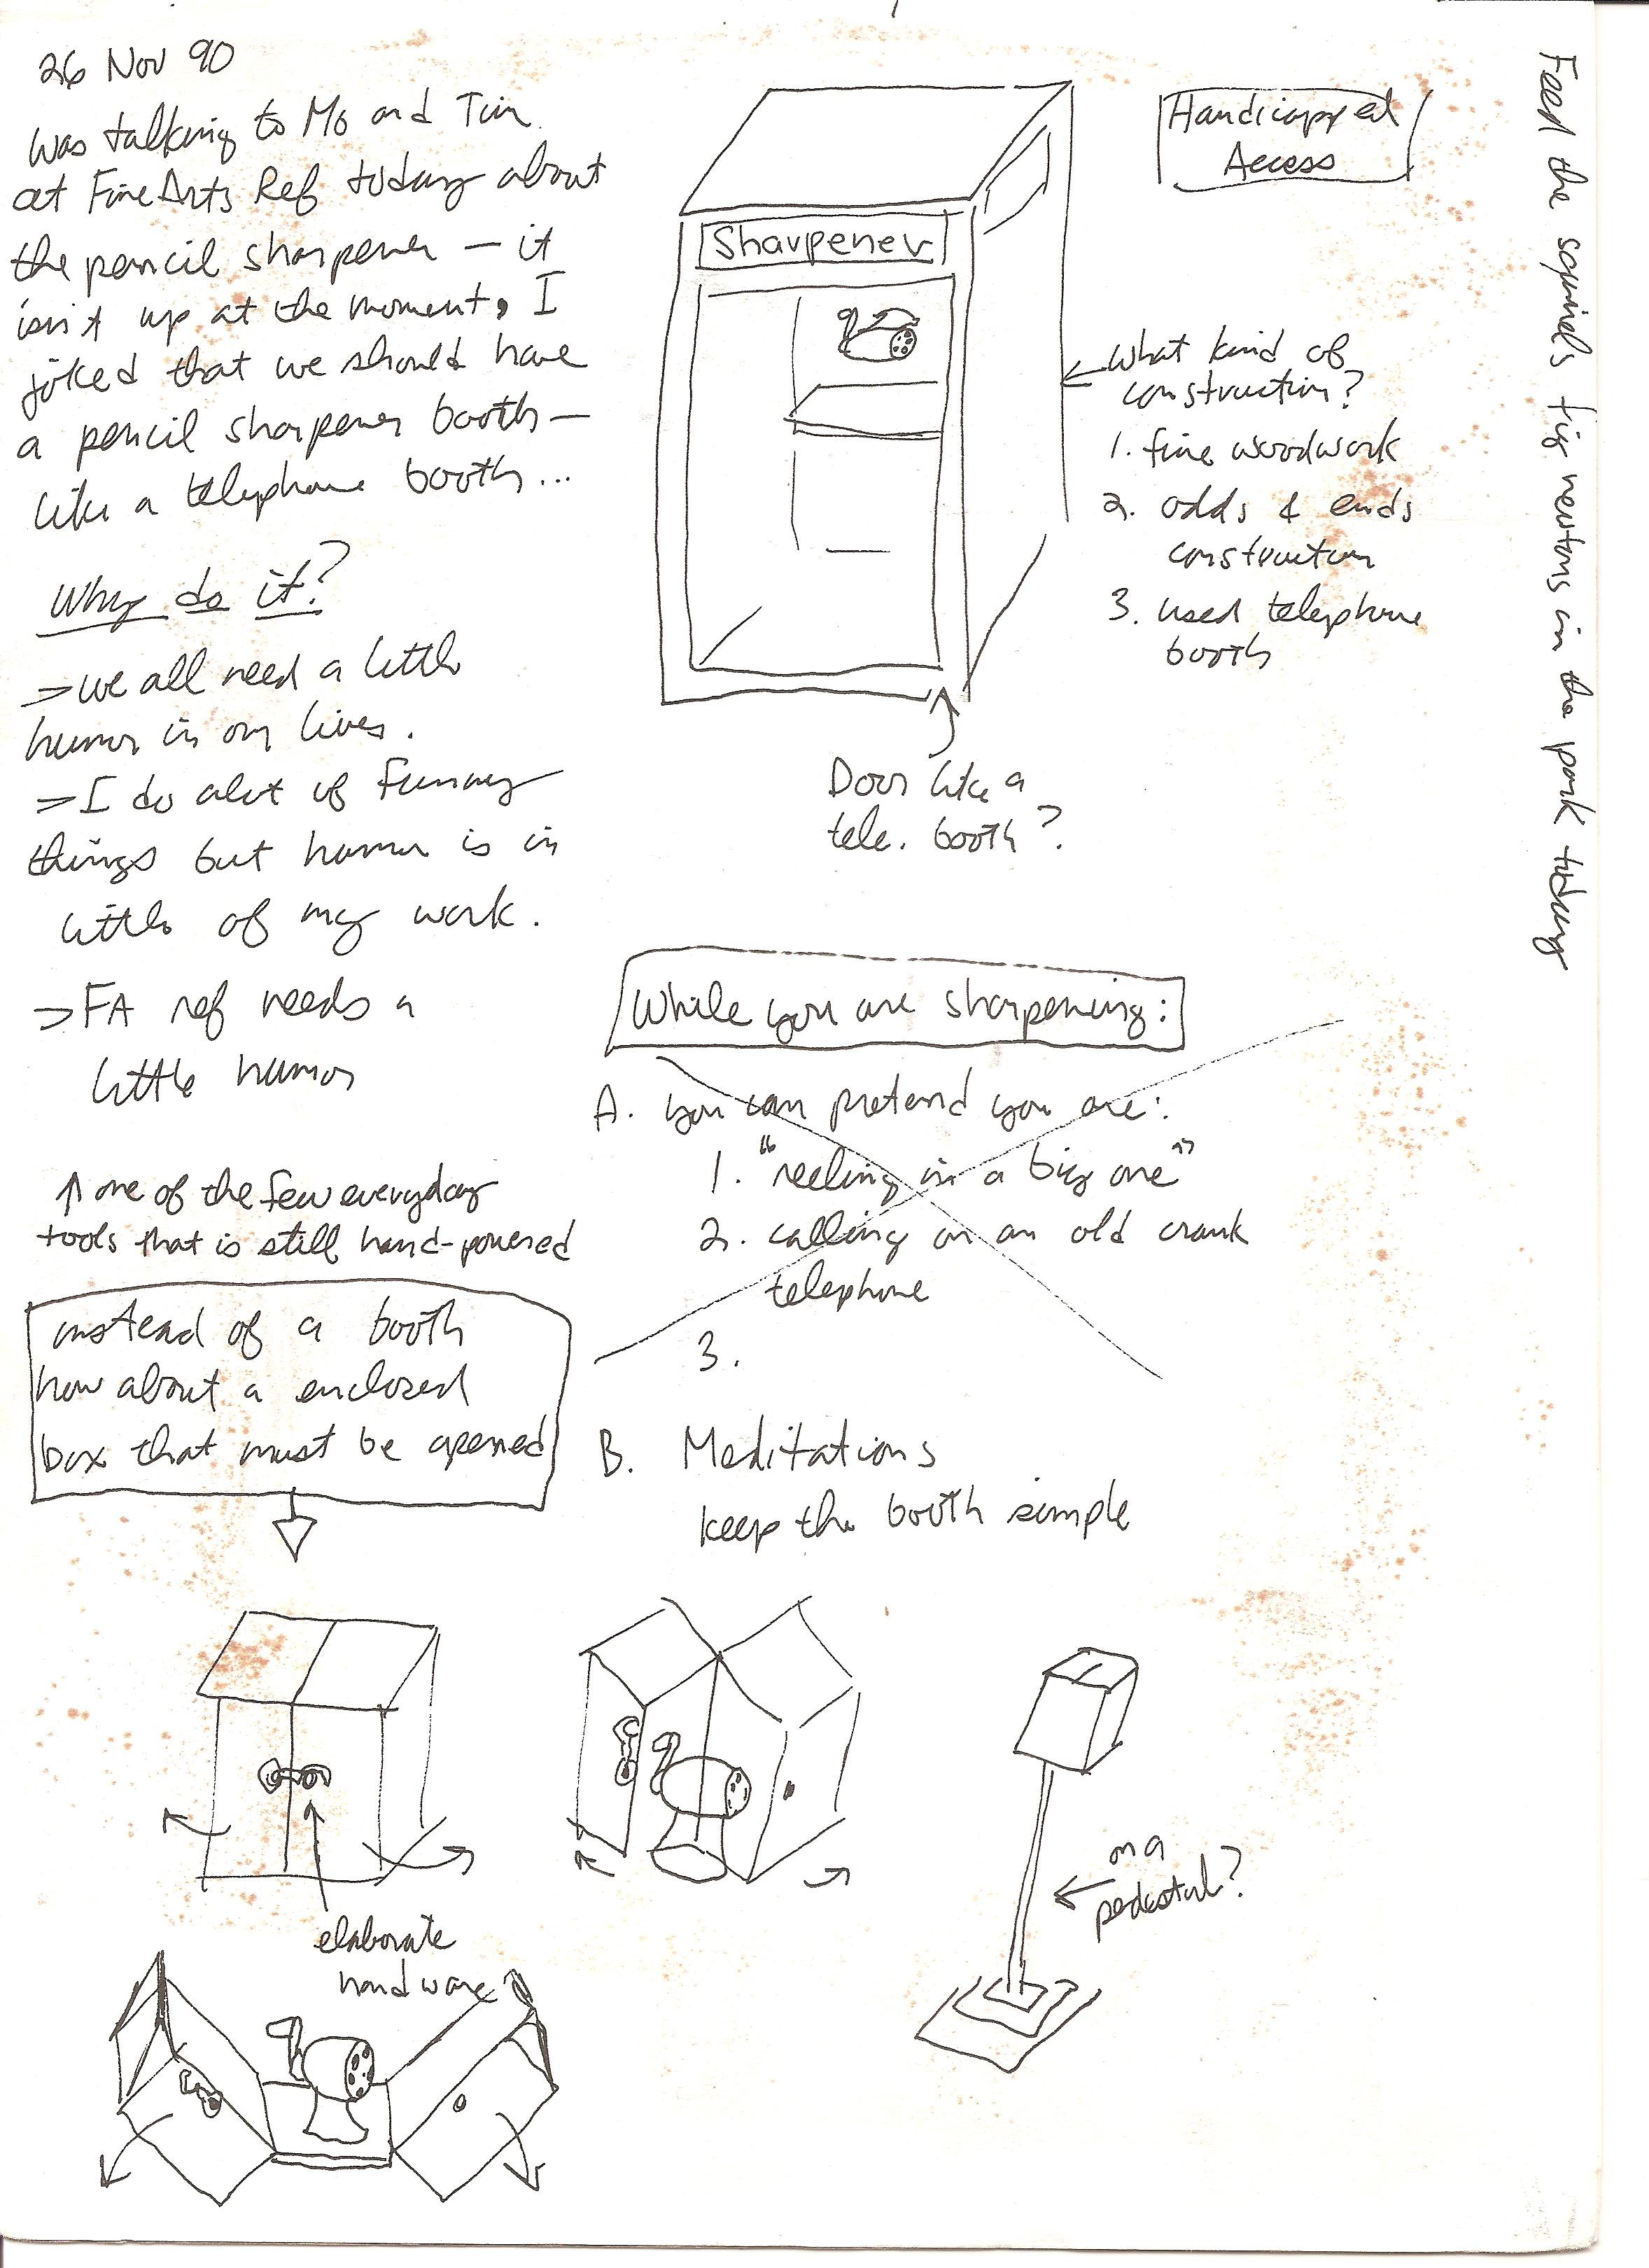 26 Nov 90
Was talking to Mo and Tim
at Fine Arts Ref today about
the pencil sharpener — it
isn't up at the moment, I
joked that we should have
a pencil sharpener booth —
like a telephone booth...
Why do it?
→ we all need a little
humor in our lives.
→ I do alot of funny
things but humor is in
little of my work.
→ FA ref needs a
little humor
↑ one of the few everyday
tools that is still hand-powered
instead of a booth
how about a enclosed
box that must be opened
Sharpener
Handicapped
Access
← What kind of
construction?
1. fine woodwork
2. odds & ends
construction
3. used telephone
booth
Door like a
tele. booth?
While you are sharpening:
A. you can pretend you are:
1. "reeling in a big one"
2. calling on an old crank
telephone
3.
B. Meditations
keep the booth simple
elaborate
hardware
on a
pedestal?
Feed the squirrels fig newtons in the park today